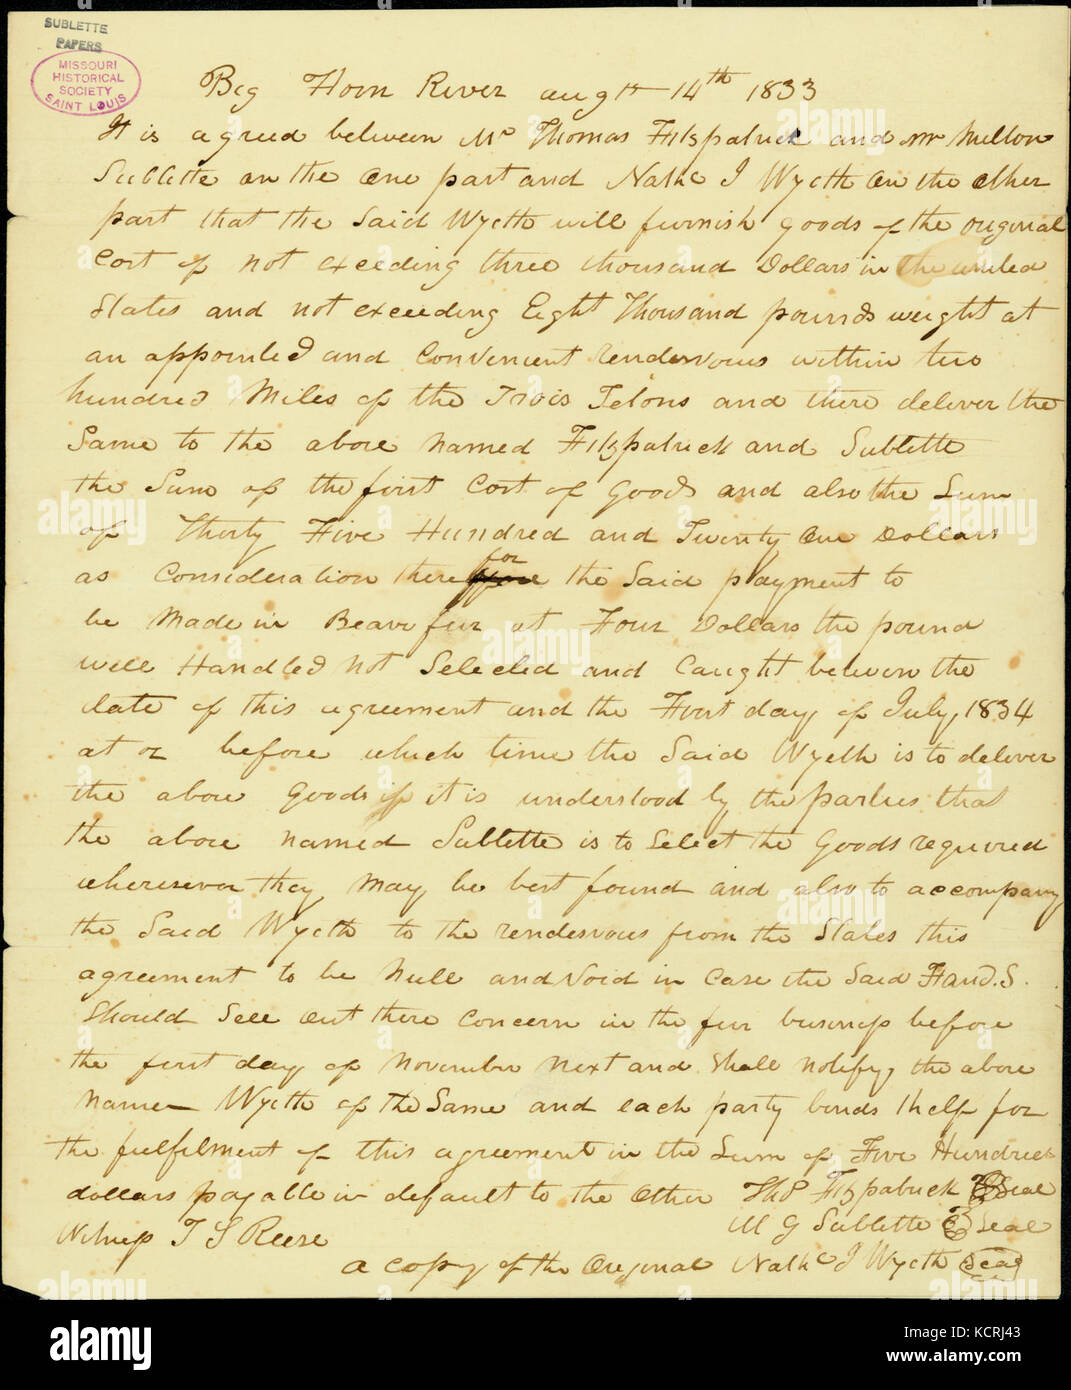 SUBLETTE
PAPERS
MISSOURI
HISTORICAL
SOCIETY
SAINT LOUIS
Big Horn River augst 14th 1833
It is agreed between Mr Thomas Fitzpatrick and Mr Milton
Sublette on the one part and Nathl J Wyeth on the other
part that the Said Wyeth will furnish goods of the original
Cost of not exeeding three thousand Dollars in the united
States and not exceeding Eight Thousand pounds weight at
an appointed and Convenient rendesvous within two
hundred Miles of the Trois Tetons and there deliver the
Same to the above named Fitzpatrick and Sublette
the Sum of the first Cost of Goods and also the Sum
of Thirty Five Hundred and Twenty One Dollars
as Consideration there for the Said payment to
be Made in Beaver fur at Four Dollars the pound
well Handled not Selected and Caught between the
date of this agreement and the First day of July, 1834
at or before which time the Said Wyeth is to deliver
the above Goods if it is understood by the parties that
the above named Sublette is to Select the Goods required
wheresever they May be best found and also to accompany
the Said Wyeth to the rendesvous from the States this
agreement to be Null and Void in Case the Said F and. S.
Should Sell out there Concern in the fur business before
the first day of November Next and Shall notify, the above
Name Wyeth of the Same and each party binds itself for
the fulfilment of this agreement in the Sum of Five Hundred
dollars payable in default to the Other Thos Fitzpatrick Seal
M G Sublette Seal
Witness T S Reese
a copy of the Original Nathl J Wyeth Seal
alamy
Image ID: KCRJ43
www.alamy.com